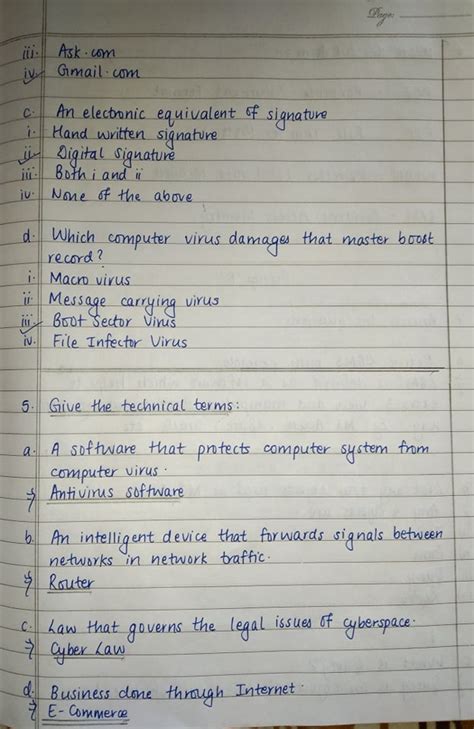 Page:
iii. Ask.com
iv. Gmail.com
c. An electronic equivalent of signature
i. Hand written signature
ii. Digital Signature
iii. Both i and ii
iv. None of the above
d. Which computer virus damages that master boost
record?
i. Macro virus
ii. Message carrying virus
iii. Boot Sector Virus
iv. File Infector Virus
5. Give the technical terms:
a. A software that protects computer system from
computer virus.
→ Antivirus software
b. An intelligent device that forwards signals between
networks in network traffic.
→ Router
c. Law that governs the legal issues of cyberspace.
→ Cyber Law
d. Business done through Internet.
→ E-Commerce